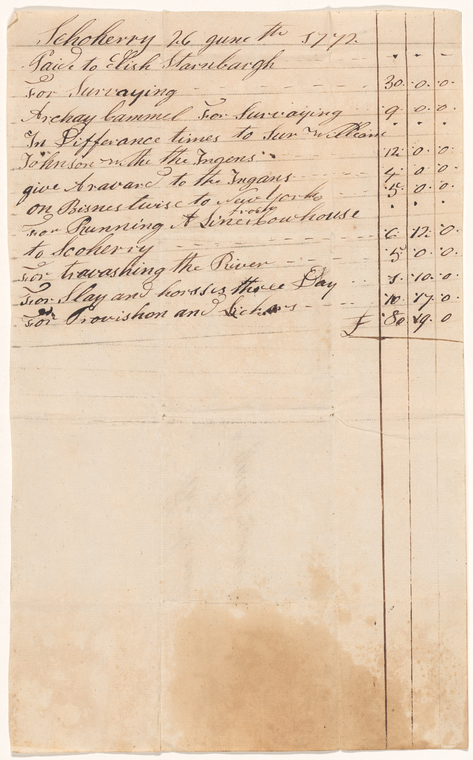 Schoherry 26 june th 1772
Paid to Elish Starnbargh
For Survaying 30 .. 0 .. 0
Archay bammel For Survaying 9 .. 0 .. 0
In Differance times to Sur William
Johnson with the Ingens 12 .. 0 .. 0
give Avarard to the Ingans 4 .. 0 .. 0
on Bisnes twise to New York 5 .. 0 .. 0
For Running A Line from bowhouse
to Scoherry 6 .. 12 .. 0
For travashing the River 5 .. 0 .. 0
For Slay and horsses three Day 1 .. 10 .. 0
For Provishon and 10 .. 17 .. 0
£ 80 .. 19 .. 0